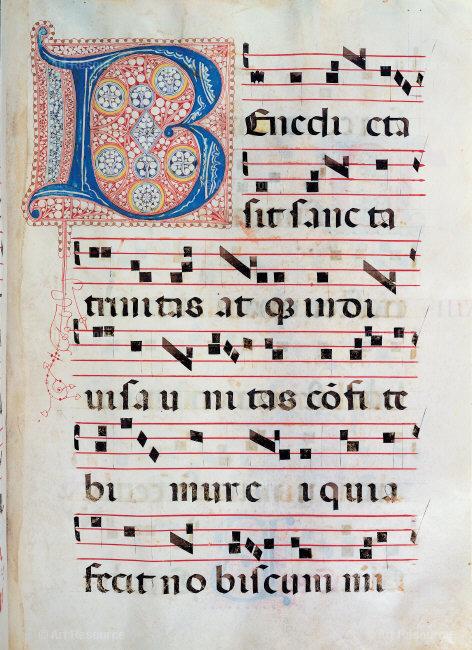 BEnedi cta
sit sanc ta
trinitas at q3 indi
uisa u nitas cõfi te
bi mur e i quia
fecit no biscum mi
© Art Resource